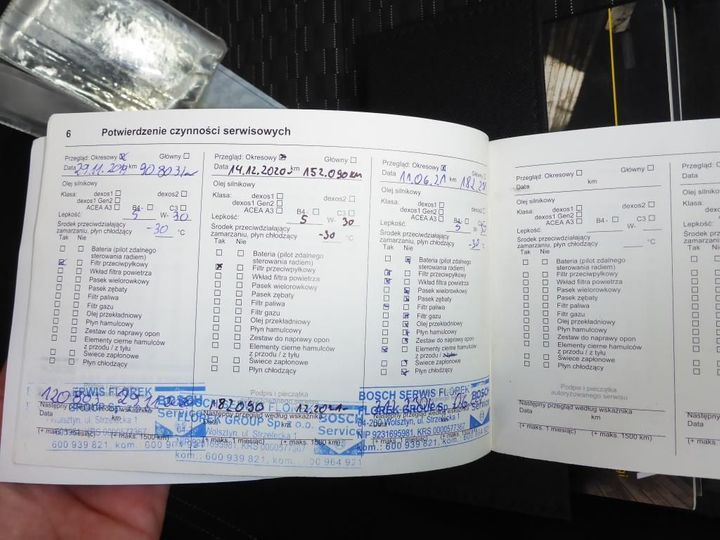 6 Potwierdzenie czynności serwisowych
Przegląd: Okresowy Główny
Data 29.11.2019 km
Olej silnikowy
Klasa: dexos1 dexos2
dexos1 Gen2
ACEA A3 B4- C3
Lepkość: 5 W- 30
Środek przeciwdziałający
zamarzaniu, płyn chłodzący -30 °C
Tak Nie
Bateria (pilot zdalnego
sterowania radiem)
Filtr przeciwpyłkowy
Wkład filtra powietrza
Pasek wielorowkowy
Pasek zębaty
Filtr paliwa
Filtr gazu
Olej przekładniowy
Płyn hamulcowy
Zestaw do naprawy opon
Elementy cierne hamulców
z przodu / z tyłu
Świece zapłonowe
Płyn chłodzący
SERWIS FLOREK
GROUP Sp.
Data km
(+ maks. 1 miesiąc) (+ maks. 1500 km)
600 939 821, kom.
Przegląd: Okresowy Główny
Data 14.12.2020 km 152.090 km
Olej silnikowy
Klasa: dexos1 dexos2
dexos1 Gen2
ACEA A3 B4- C3
Lepkość: 5 W- 30
Środek przeciwdziałający
zamarzaniu, płyn chłodzący -30 °C
Tak Nie
Bateria (pilot zdalnego
sterowania radiem)
Filtr przeciwpyłkowy
Wkład filtra powietrza
Pasek wielorowkowy
Pasek zębaty
Filtr paliwa
Filtr gazu
Olej przekładniowy
Płyn hamulcowy
Zestaw do naprawy opon
Elementy cierne hamulców
z przodu / z tyłu
Świece zapłonowe
Płyn chłodzący
BOSCH
Service
182090
Następny przegląd według wskaźnika
GROUP Sp. z o.o.
Wolsztyn, ul. Strzelecka 1
(+ maks. 1 miesiąc) (+ maks. 1500 km)
kom.: 600 939 821, kom.: 600 964 921
Przegląd: Okresowy Główny
Data 11.06.21
Olej silnikowy
Klasa: dexos1 dexos2
dexos1 Gen2
ACEA A3 B4- C3
Lepkość: 5
Środek przeciwdziałający
zamarzaniu, płyn chłodzący °C
Tak Nie
Bateria (pilot zdalnego
sterowania radiem)
Filtr przeciwpyłkowy
Wkład filtra powietrza
Pasek wielorowkowy
Pasek zębaty
Filtr paliwa
Filtr gazu
Olej przekładniowy
Płyn hamulcowy
Zestaw do naprawy opon
Elementy cierne hamulców
z przodu / z tyłu
Świece zapłonowe
Płyn chłodzący
BOSCH SERWIS FLOREK
FLOREK GROUP Sp.
Wolsztyn, ul. Strzelecka 1
NIP 9231695981, KRS 0000577367
(+ maks. 1 miesiąc) (+ maks. 1500 km)
kom.: 600 939 821, kom.
Przegląd: Okresowy Główny
Data km
Olej silnikowy
Klasa: dexos1 dexos2
dexos1 Gen2
ACEA A3 B4- C3
Lepkość: W-
Środek przeciwdziałający
zamarzaniu, płyn chłodzący °C
Tak Nie
Bateria (pilot zdalnego
sterowania radiem)
Filtr przeciwpyłkowy
Wkład filtra powietrza
Pasek wielorowkowy
Pasek zębaty
Filtr paliwa
Filtr gazu
Olej przekładniowy
Płyn hamulcowy
Zestaw do naprawy opon
Elementy cierne hamulców
z przodu / z tyłu
Świece zapłonowe
Płyn chłodzący
Podpis i pieczątka
autoryzowanego serwisu
Następny przegląd według wskaźnika
Data km
(+ maks. 1 miesiąc) (+ maks. 1500 km)